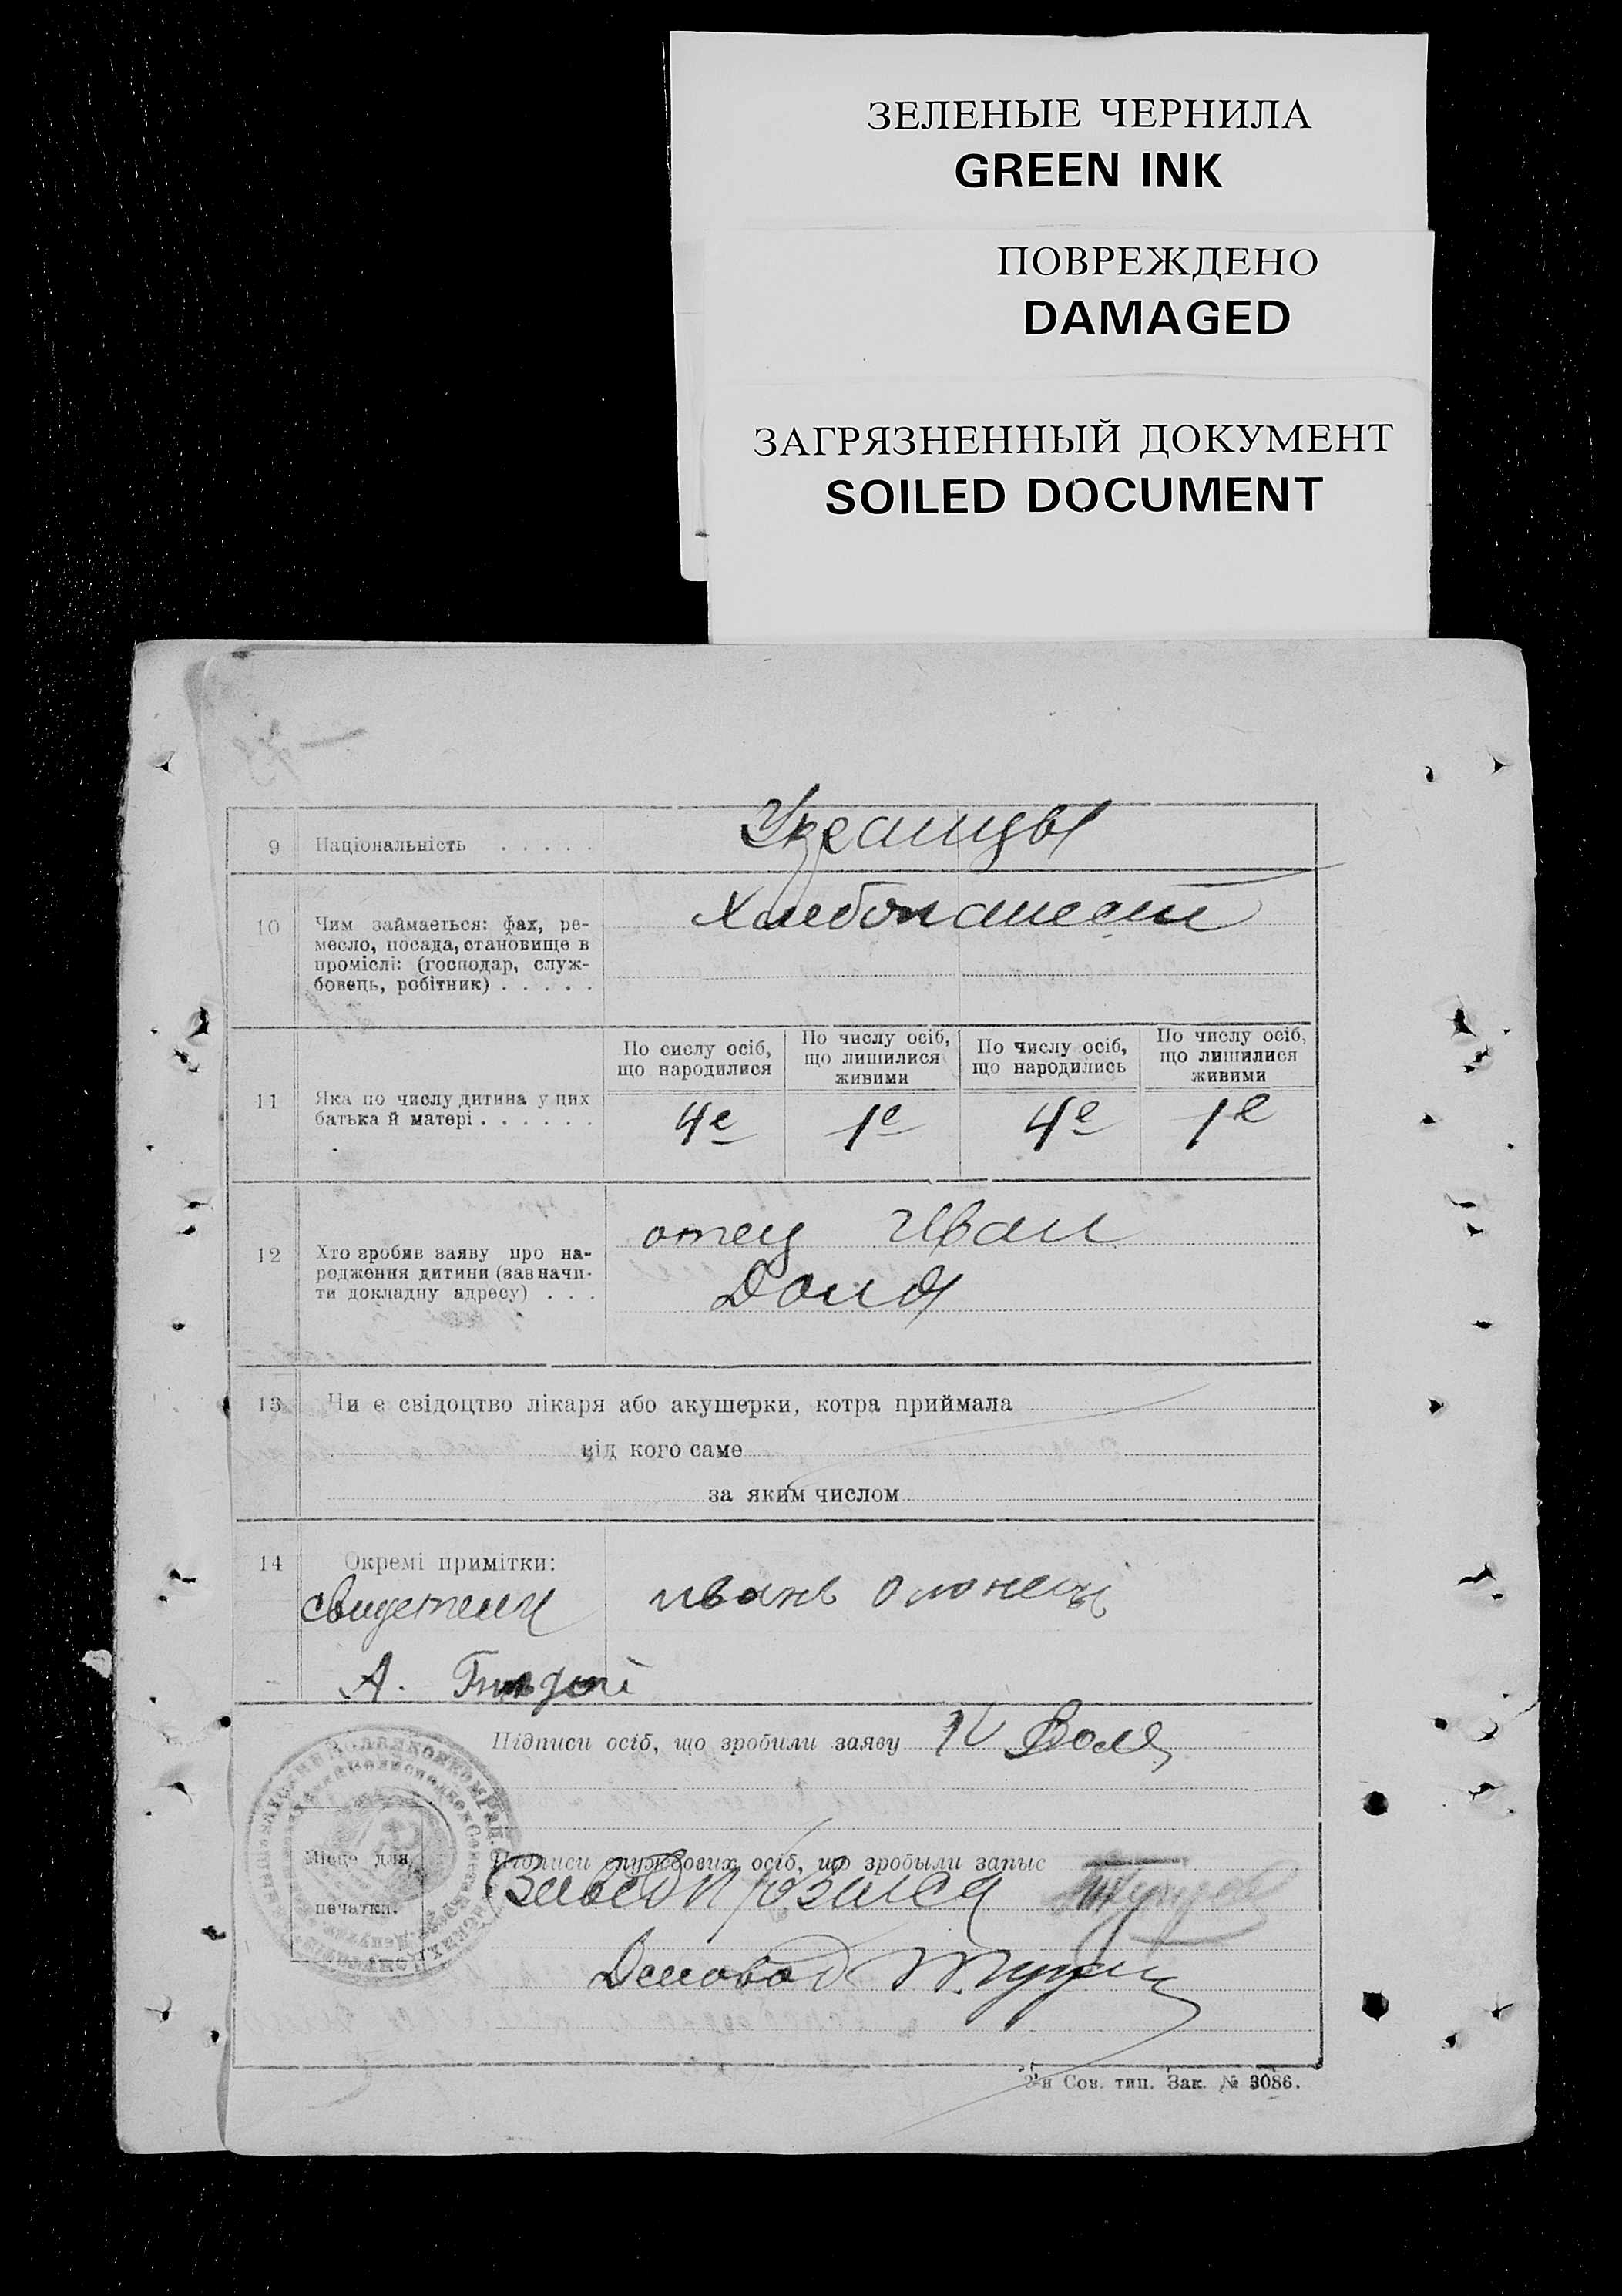 ЗЕЛЕНЫЕ ЧЕРНИЛА
GREEN INK
ПОВРЕЖДЕНО
DAMAGED
ЗАГРЯЗНЕННЫЙ ДОКУМЕНТ
SOILED DOCUMENT
9 Національність . . . . .
Украинцы
10 Чим займається: фах, ре-
месло, посада, становище в
промислі: (господар, служ-
бовець, робітник) . . . . .
Хлебопашест
11 Яка по числу дитина у цих
батька й матері . . . . . .
По сислу осіб,
що народилися
По числу осіб,
що лишилися
живими
По числу осіб,
що народились
По числу осіб,
що лишилися
живими
4е 1е 4е 1е
12 Хто зробив заяву про на-
родження дитини (зазначи-
ти докладну адресу) . . .
отец Иван
13 Чи є свідоцтво лікаря або акушерки, котра приймала
від кого саме
за яким числом
14 Окремі примітки:
свидетели иванъ
А.
Підписи осіб, що зробили заяву
Місце для
печатки.
Підписи службових осіб, що зробыли запыс
Завед п/о Загса
Деловод
2-я Сов. тип. Зак. № 3086.